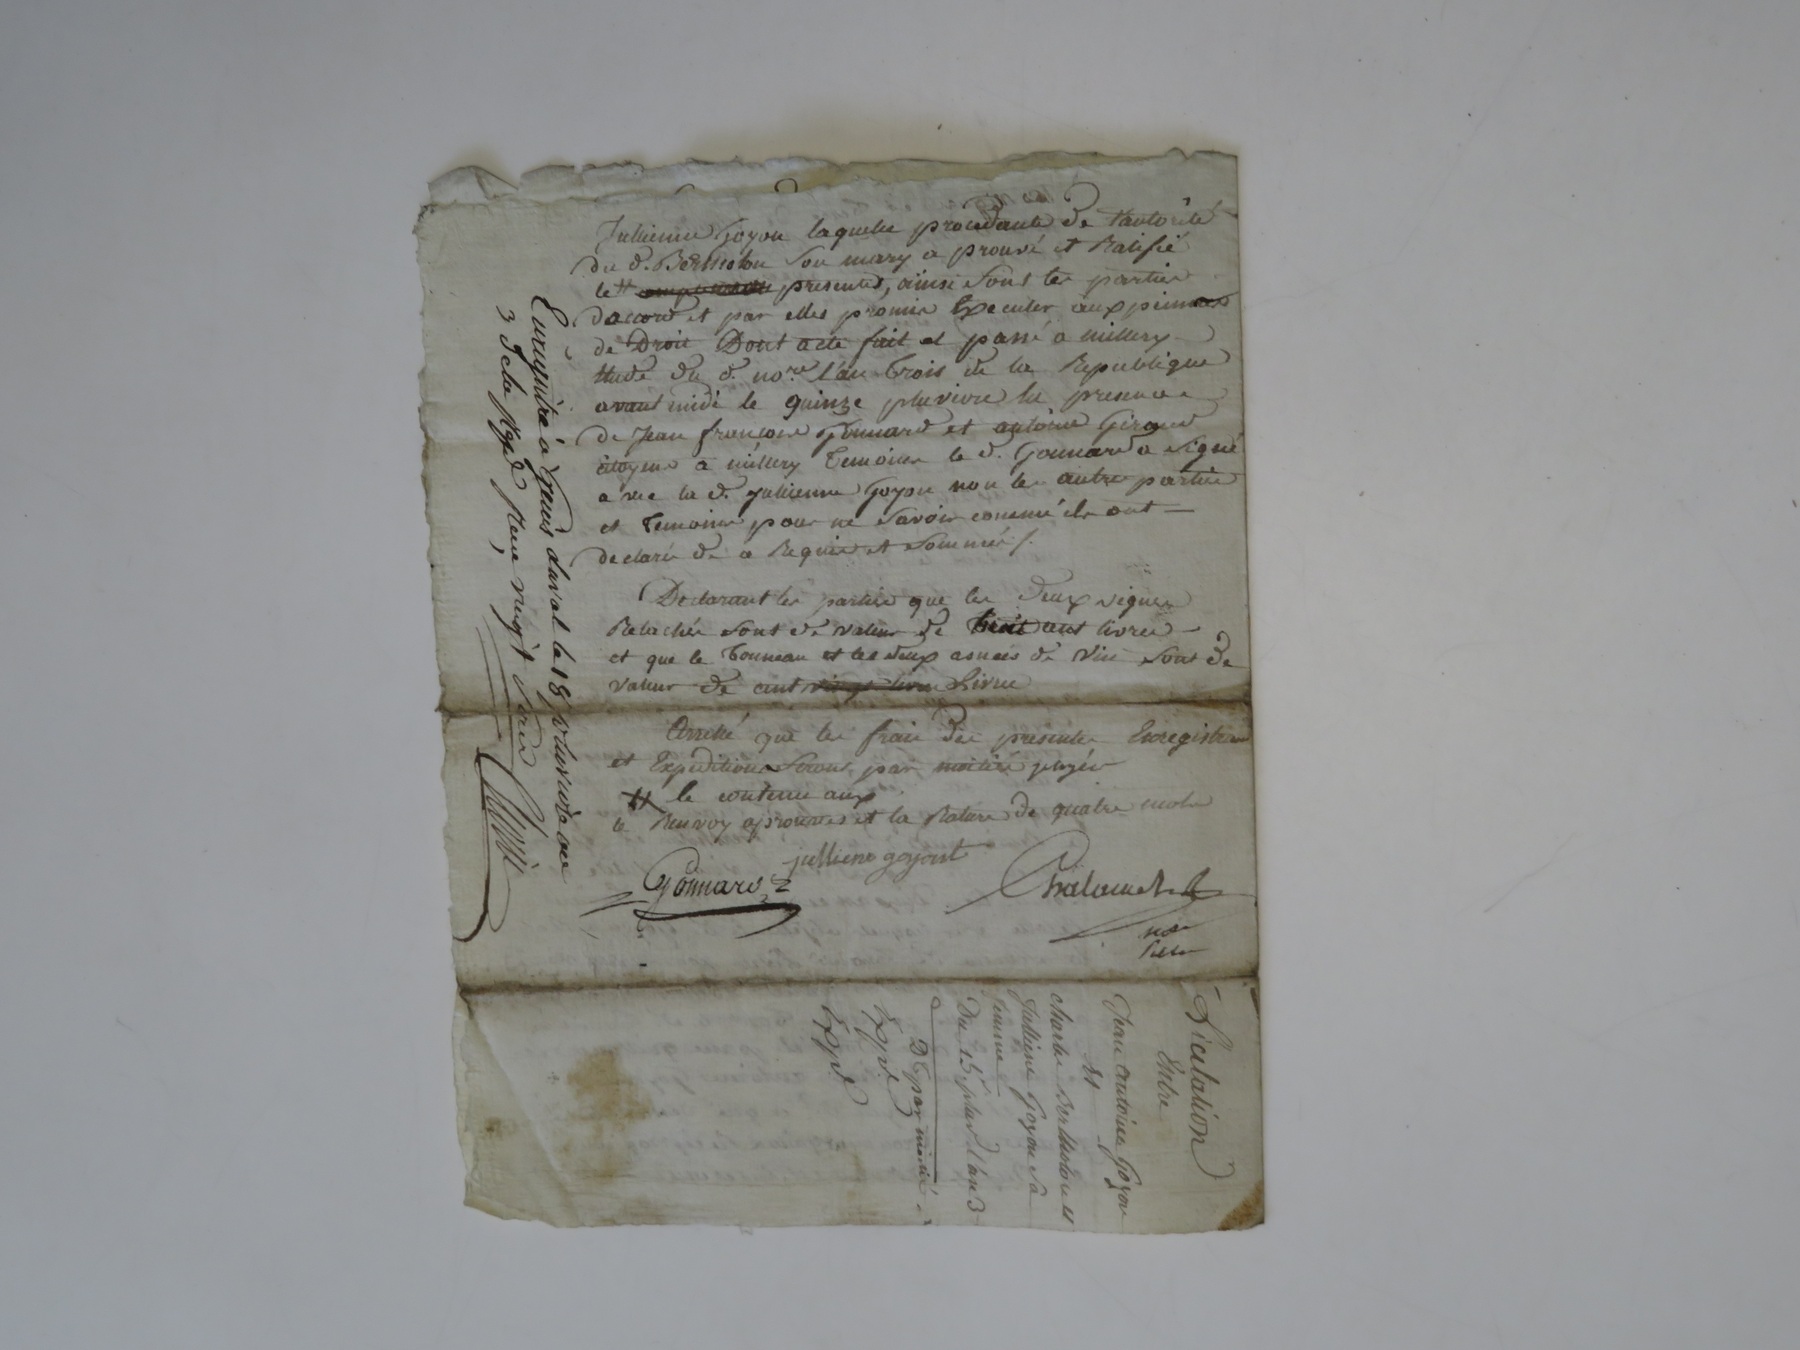 Jullienne Goyon laquelle procedante de l'autorité
du d. Bertholon son mary a prouvé et Ratifié
le # presentes, ainsi sont les parties
daccord et par elles promis Executer aux peines
de Droit Dont acte fait et passé a millery
etude du d. nore. l'an trois de la Republique
avant midi le quinze pluviose la presence
de Jean francois Gonnard et antoine Giraud
citoyens a millery temoins le d. Gonnard a signé
avec la d. Jullienne Goyon non les autres parties
et temoins pour ne savoir comme ils ont
declaré de ce Requis et sommés /.
Declarant les parties que les deux vignes
Relachés sont de valeur de cent livres
et que le tonneau et les deux asnées de vin sont de
valeur de cent Livres
Arreté que les frais des presentes Enregistrement
et Expeditions seront par moitié payés
# le contenu aux
le Renvoy aprouvés et la Rature de quatre mots
jullienne goyont
Gonnard
Chalamel
nore
Enregistré à Genis laval le 18 pluviose an
3 Icle Reçu vingt sous
Licitation
Entre
Jean antoine Goyon
et
charles Berthelon et
Jullienne Goyon sa
femme
Du 15 pluv. l'an 3
2 E par moitié
Expé.
Expé.